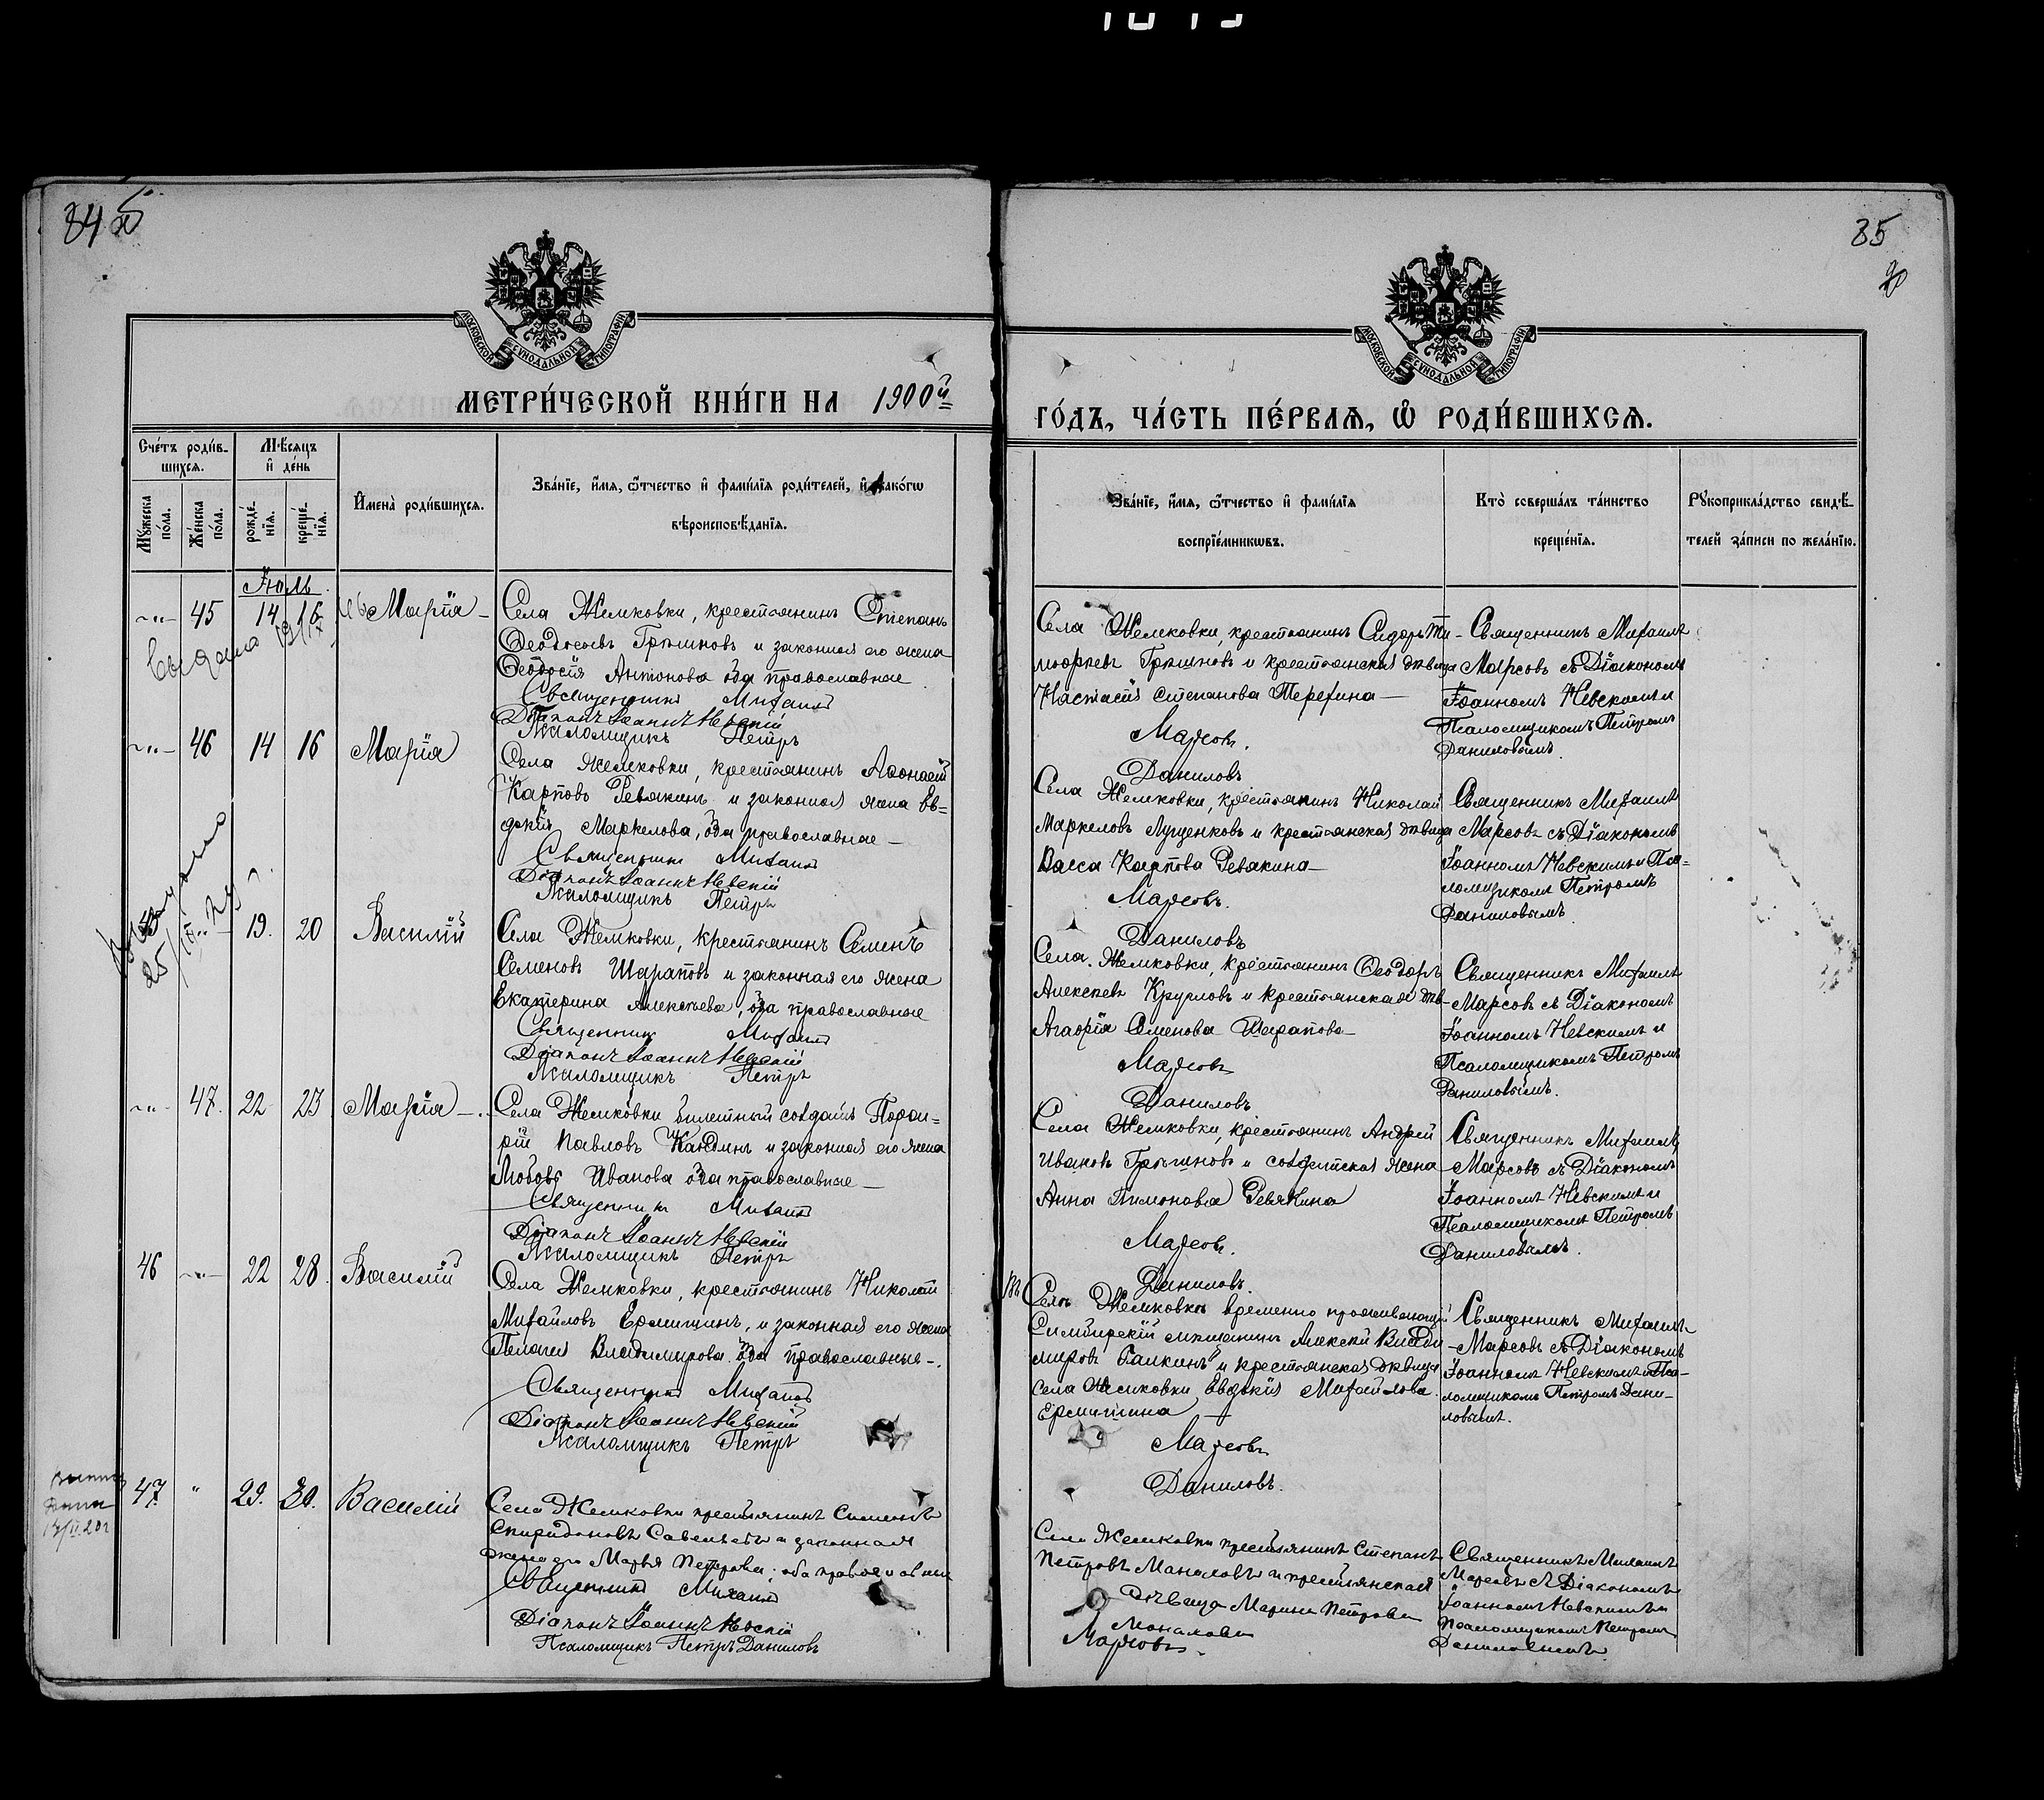 84
35
МОСКОВСКОЙ СѴНОДАЛЬНОЙ ТИПОГРАФІИ
МОСКОВСКОЙ СѴНОДАЛЬНОЙ ТИПОГРАФІИ
МЕТРИ́ЧЕСКОЙ КНИ́ГИ НА 1900й
ГО́ДЪ, ЧА́СТЬ ПЕ́РВАЯ, Ѡ҆ РОДИ́ВШИХСЯ.
Сче́тъ роди́в-
шихся.
Мѣ́сяцъ
и҆ де́нь
Мꙋ́жеска по́ла.
Же́нска по́ла.
рожде́-
нїя.
креще́-
нїя.
И҆мена̀ роди́вшихся.
Зва́нїе, и҆́мя, ѻ҆́тчество и҆ фами́лїя роди́телей, и҆ како́гѡ
вѣроисповѣ́данїя.
Зва́нїе, и҆́мя, ѻ҆́тчество и҆ фами́лїя
воспрїе́мникѡвъ.
Кто̀ соверша́лъ та́инство
креще́нїя.
Рꙋкоприкла́дство свидѣ́-
телей за́писи по жела́нїю.
Іюль
45 14 16 Марія
Села Жемковки, крестьянинъ Степанъ
Ѳеодосіевъ Гришновъ и законная его жена
Ѳеодосія Антонова оба православные
Священникъ Михаилъ
Діаконъ Іоаннъ Невскій
Псаломщикъ Петръ
Села Жемковки, крестьянинъ Сидоръ Ти-
моѳеевъ Гришновъ и крестьянская дѣвица
Настасія Степанова Терехина
Марсовъ.
Даниловъ
Священникъ Михаилъ
Марсовъ съ Діакономъ
Іоанномъ Невскимъ и
Псаломщикомъ Петромъ
Даниловымъ.
46 14 16 Марія
Села Жемковки, крестьянинъ Аѳонасій
Карповъ Ревякинъ и законная жена Ев-
докія Маркелова, оба православные
Священникъ Михаилъ
Діаконъ Іоаннъ Невскій
Псаломщикъ Петръ
Села Жемковки, крестьянинъ Николай
Маркеловъ Лущенковъ и крестьянская дѣвица
Васса Карпова Ревякина
Марсовъ.
Даниловъ
Священникъ Михаилъ
Марсовъ съ Діакономъ
Іоанномъ Невскимъ и Пса-
ломщикомъ Петромъ
Даниловымъ.
19. 20 Василій
Села Жемковки, крестьянинъ Семенъ
Семеновъ Шараповъ и законная его жена
Екатерина Алексѣева, оба православные
Священникъ Михаилъ
Діаконъ Іоаннъ Невскій
Псаломщикъ Петръ
Села Жемковки, крестьянинъ Ѳеодоръ
Алексѣевъ Кругловъ и крестьянская дѣв-
Агаѳія Семенова Шарапова
Марсовъ
Даниловъ
Священникъ Михаилъ
Марсовъ съ Діакономъ
Іоанномъ Невскимъ и
Псаломщикомъ Петромъ
Даниловымъ.
47. 22 23 Марія
Села Жемковки билетный солдатъ Порфи-
рій Павловъ и законная его жена
Любовь Иванова оба православные
Священникъ Михаилъ
Діаконъ Іоаннъ Невскій
Псаломщикъ Петръ
Села Жемковки, крестьянинъ Андрей
Ивановъ Гришновъ и солдатская жена
Анна Пимонова Ревякина
Марсовъ.
Даниловъ.
Священникъ Михаилъ
Марсовъ съ Діакономъ
Іоанномъ Невскимъ и
Псаломщикомъ Петромъ
Даниловымъ.
46 22 28. Василій
Села Жемковки, крестьянинъ Николай
Михайловъ Ермишинъ, и законная его жена
Пелагія Владимирова. оба православные.
Священникъ Михаилъ
Діаконъ Іоаннъ Невскій
Псаломщикъ Петръ
Въ Селѣ Жемковкѣ временно проживающій
Симбирскій мѣщанинъ Алексѣй Влади-
мировъ Галкинъ и крестьянская дѣвица
села Жемковки Евдокія Михайлова
Ермишина
Марсовъ
Даниловъ.
Священникъ Михаилъ
Марсовъ съ Діакономъ
Іоанномъ Невскимъ и Пса-
ломщикомъ Петромъ Дани-
ловымъ.
47 " 29. 30. Василій
Села Жемковки крестьянинъ Симеонъ
Спиридоновъ Савельевъ и законная
жена его Марья Петрова; оба православные
Священникъ Михаилъ
Діаконъ Іоаннъ Невскій
Псаломщикъ Петръ Даниловъ
Села Жемковки крестьянинъ Степанъ
Петровъ Маналовъ и крестьянская
дѣвица Марина Петрова
Маналова
Марсовъ.
Священникъ Михаилъ
Марсовъ съ Діакономъ
Іоанномъ Невскимъ и
Псаломщикомъ Петромъ
Даниловымъ